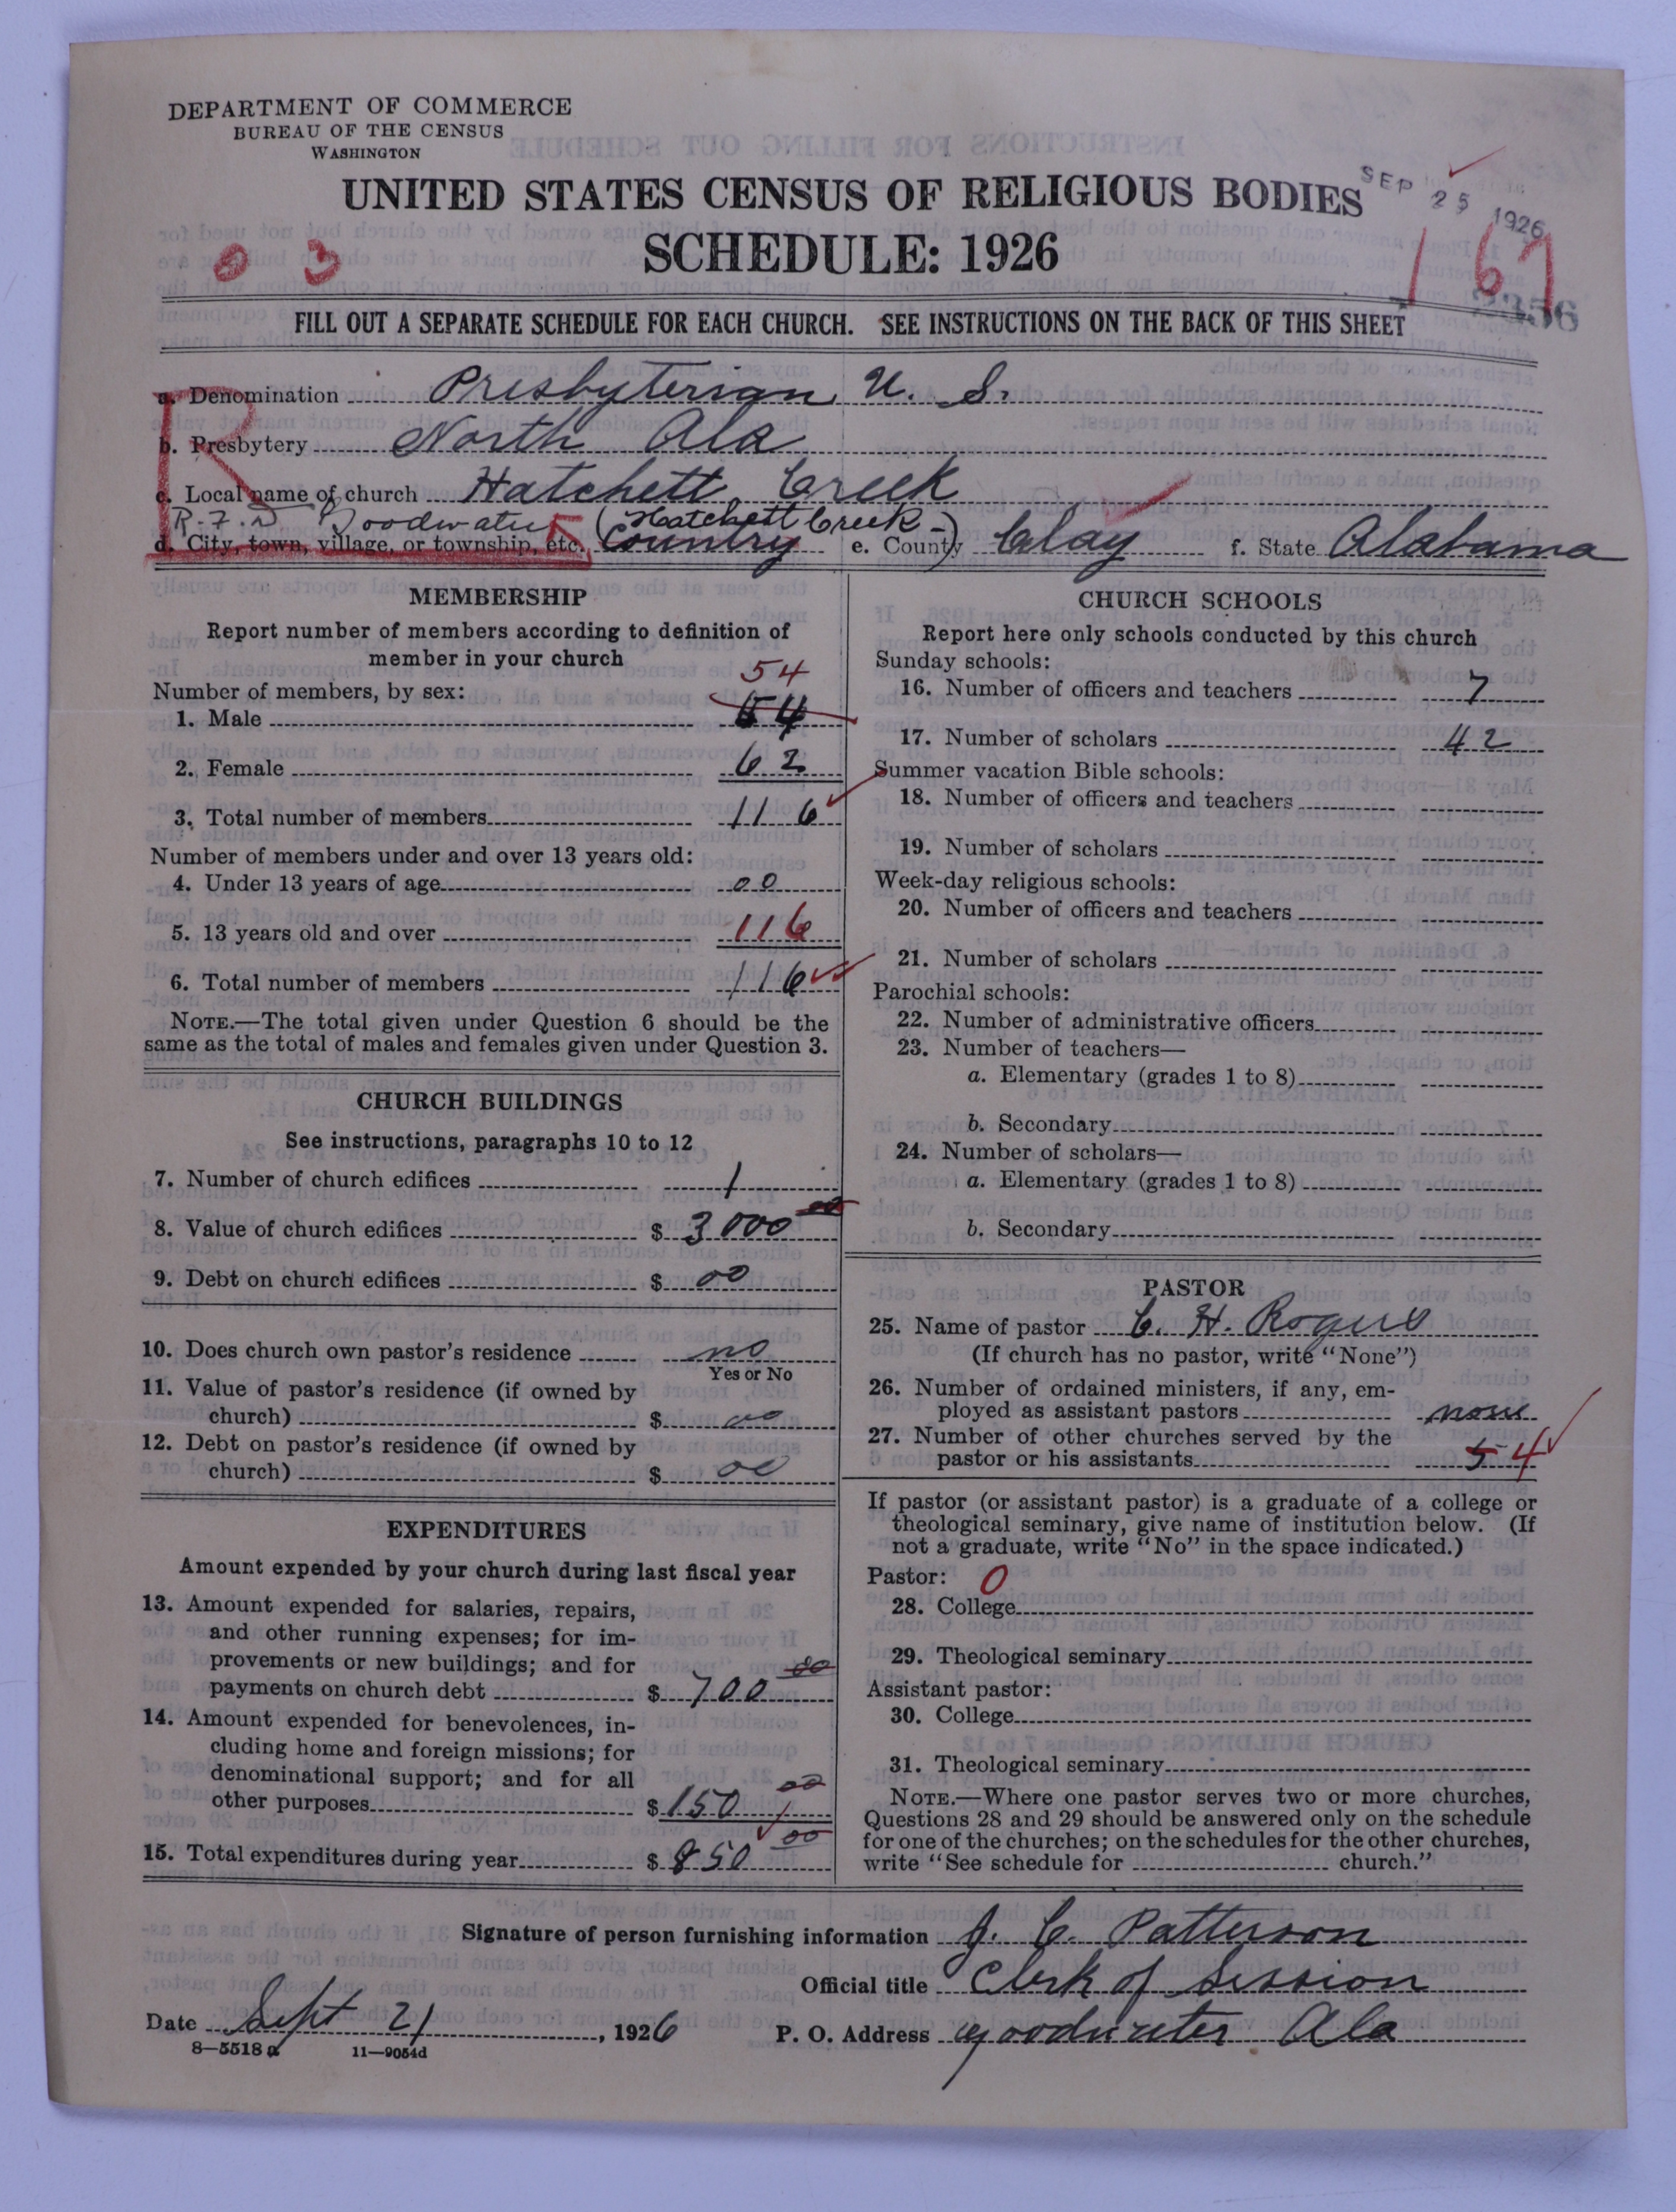 DEPARTMENT OF COMMERCE
BUREAU OF THE CENSUS
WASHINGTON
UNITED STATES CENSUS OF RELIGIOUS BODIES
SEP 25 1926
SCHEDULE: 1926
0 3
167
FILL OUT A SEPARATE SCHEDULE FOR EACH CHURCH. SEE INSTRUCTIONS ON THE BACK OF THIS SHEET
R
a. Denomination Presbyterian U. S.
b. Presbytery North Ala
c. Local name of church Hatchett Creek
R.F.D Goodwater (Hatchett Creek-)
d. City, town, village, or township, etc. Country e. County Clay f. State Alabama
MEMBERSHIP
Report number of members according to definition of
member in your church
54
Number of members, by sex:
1. Male 54
2. Female 62
3. Total number of members 116
Number of members under and over 13 years old:
4. Under 13 years of age 00
5. 13 years old and over 116
6. Total number of members 116
NOTE.—The total given under Question 6 should be the
same as the total of males and females given under Question 3.
CHURCH BUILDINGS
See instructions, paragraphs 10 to 12
7. Number of church edifices 1
8. Value of church edifices $ 3000 00
9. Debt on church edifices $ 00
10. Does church own pastor's residence no
Yes or No
11. Value of pastor's residence (if owned by
church) $ 00
12. Debt on pastor's residence (if owned by
church) $ 00
EXPENDITURES
Amount expended by your church during last fiscal year
13. Amount expended for salaries, repairs,
and other running expenses; for im-
provements or new buildings; and for
payments on church debt $ 700 00
14. Amount expended for benevolences, in-
cluding home and foreign missions; for
denominational support; and for all
other purposes $ 150 00
15. Total expenditures during year $ 850 00
CHURCH SCHOOLS
Report here only schools conducted by this church
Sunday schools:
16. Number of officers and teachers 7
17. Number of scholars 42
Summer vacation Bible schools:
18. Number of officers and teachers
19. Number of scholars
Week-day religious schools:
20. Number of officers and teachers
21. Number of scholars
Parochial schools:
22. Number of administrative officers
23. Number of teachers—
a. Elementary (grades 1 to 8)
b. Secondary
24. Number of scholars—
a. Elementary (grades 1 to 8)
b. Secondary
PASTOR
25. Name of pastor C. H. Rogers
(If church has no pastor, write "None")
26. Number of ordained ministers, if any, em-
ployed as assistant pastors none
27. Number of other churches served by the
pastor or his assistants 5 4
If pastor (or assistant pastor) is a graduate of a college or
theological seminary, give name of institution below. (If
not a graduate, write "No" in the space indicated.)
Pastor: 0
28. College
29. Theological seminary
Assistant pastor:
30. College
31. Theological seminary
NOTE.—Where one pastor serves two or more churches,
Questions 28 and 29 should be answered only on the schedule
for one of the churches; on the schedules for the other churches,
write "See schedule for church."
Signature of person furnishing information J. C. Patterson
Official title Clerk of Session
Date Sept 21, 1926 P. O. Address Goodwater Ala
8—5518 a 11—9054d